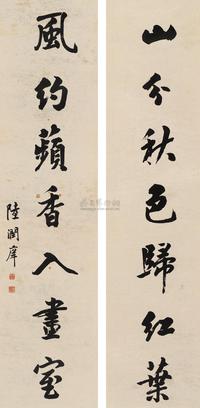 山分秋色歸紅葉
風約蘋香入畫室
陸潤庠